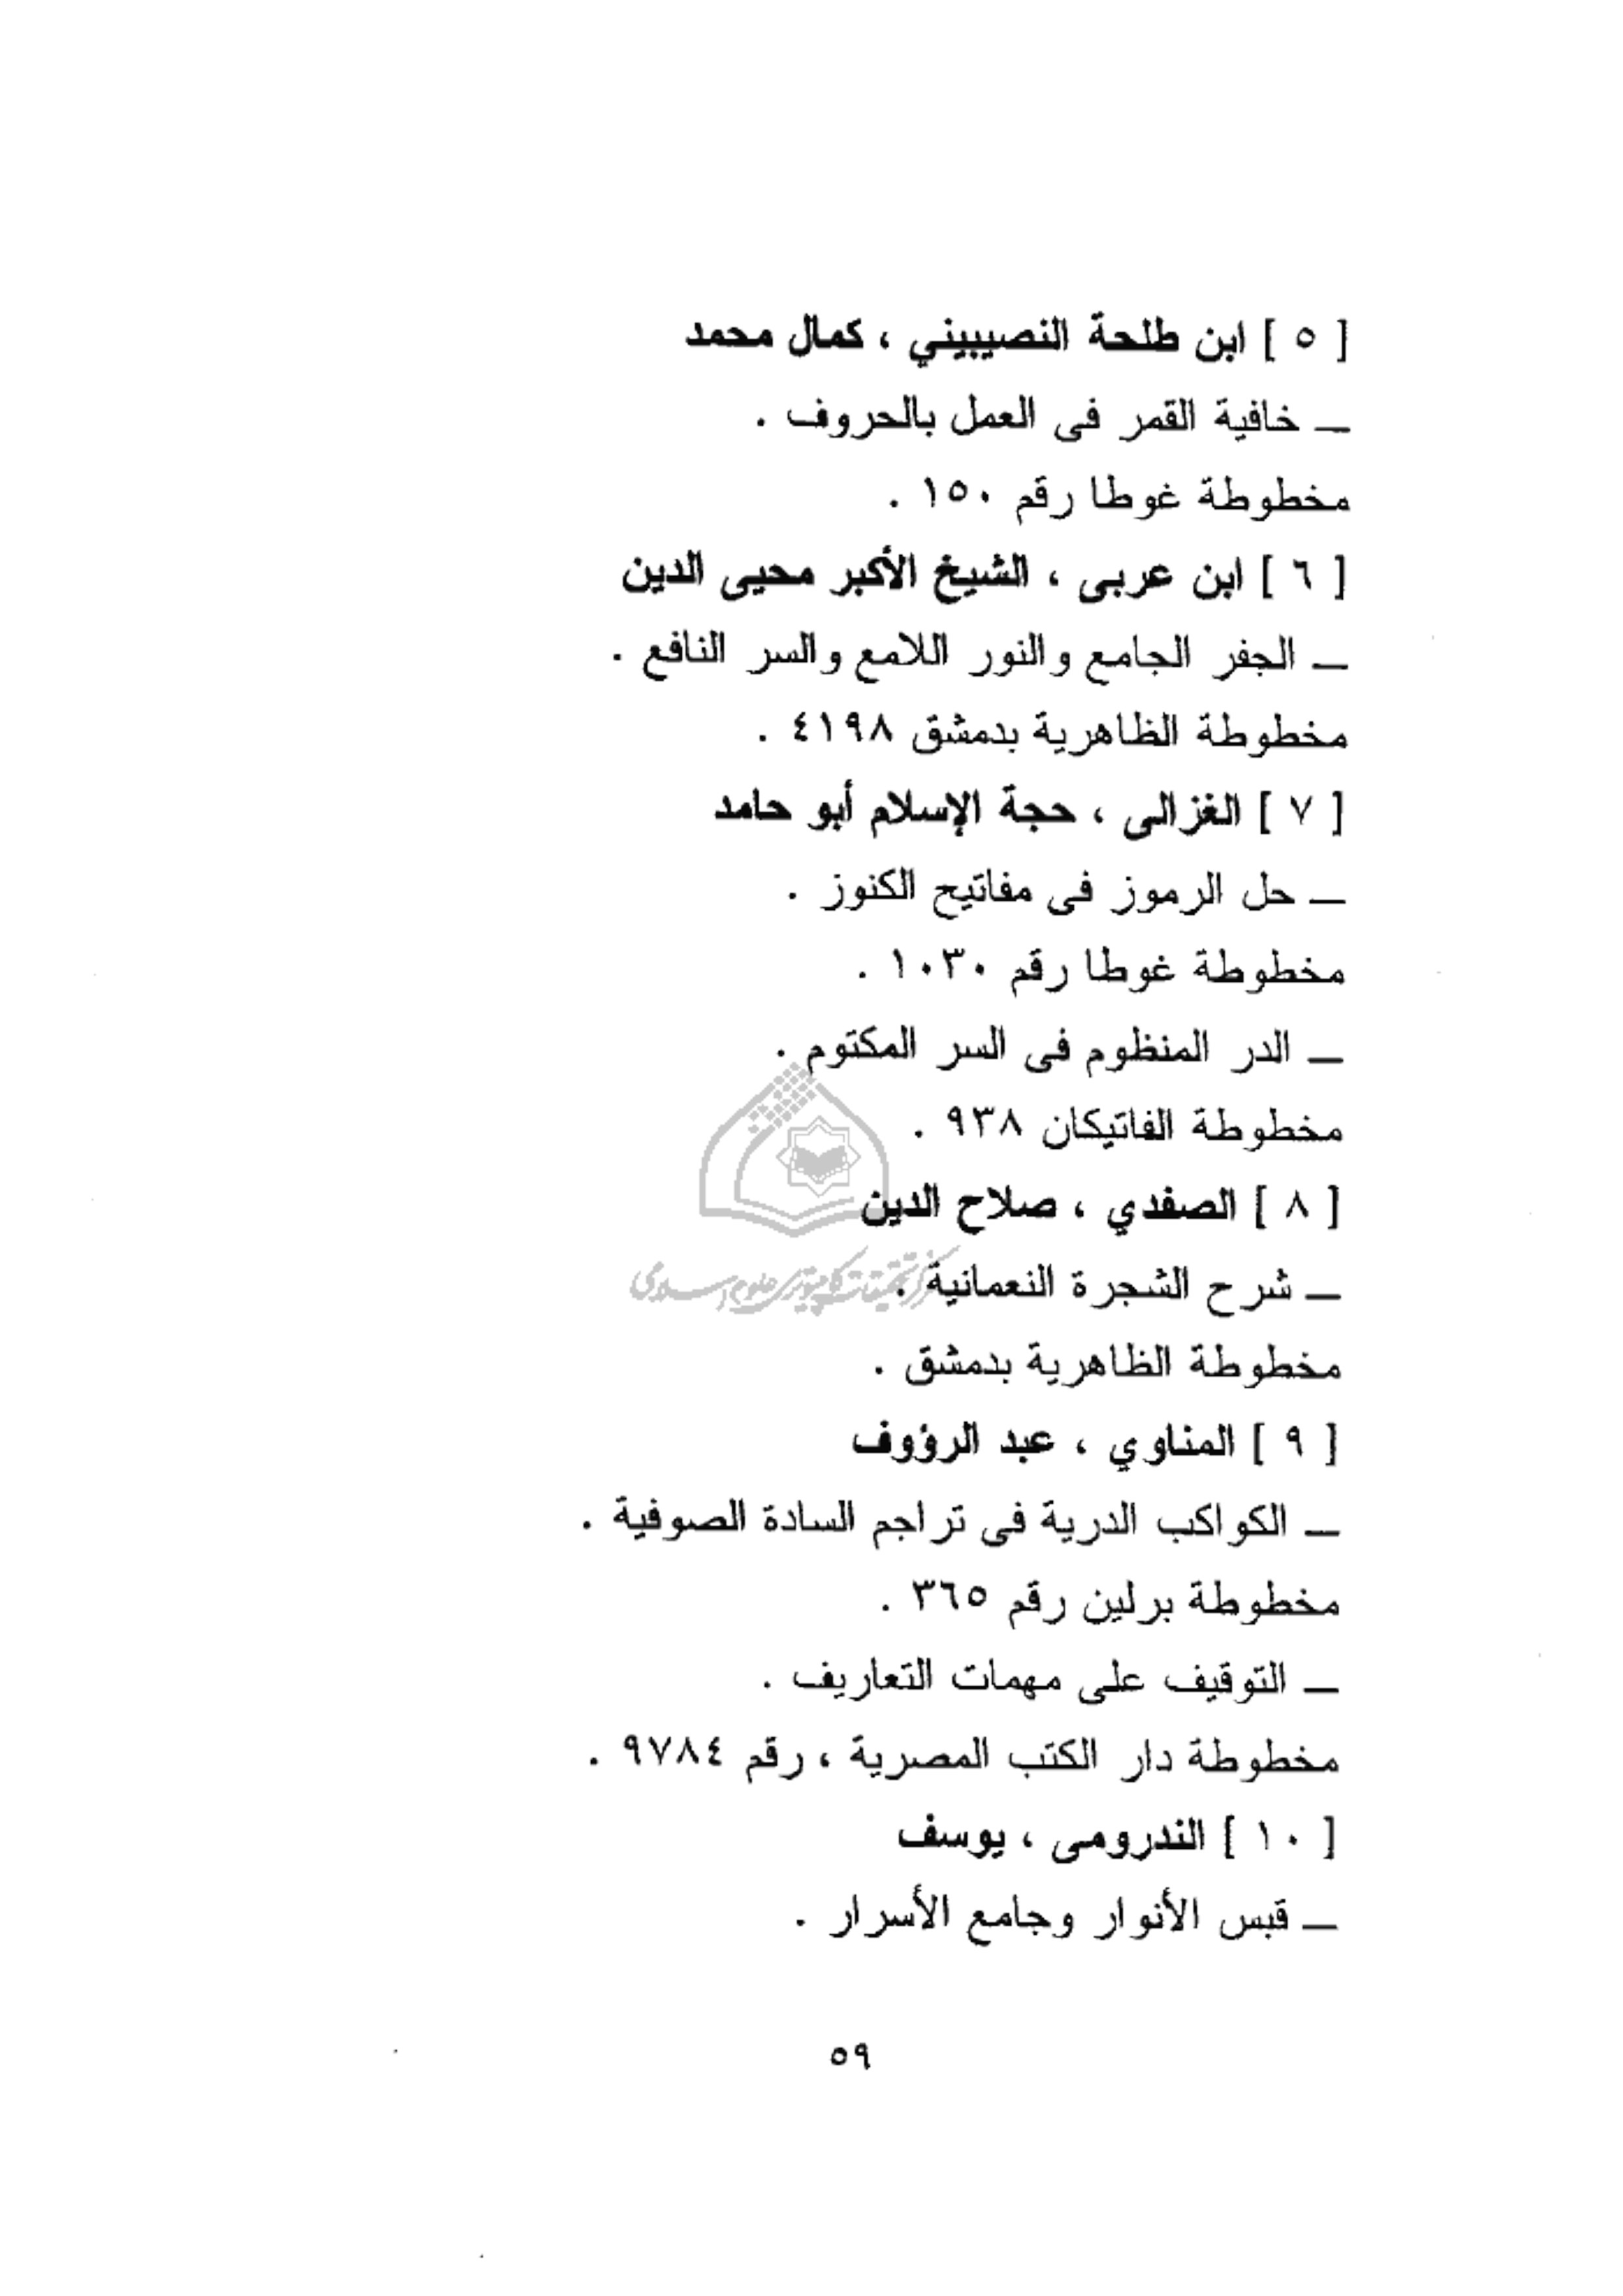 [ ٥ ] ابن طلحة النصيبيني ، كمال محمد
ـ خافية القمر فى العمل بالحروف .
مخطوطة غوطا رقم ١٥٠ .
[ ٦ ] ابن عربى ، الشيخ الأكبر محيى الدين
ـ الجفر الجامع والنور اللامع والسر النافع .
مخطوطة الظاهرية بدمشق ٤١٩٨ .
[ ٧ ] الغزالى ، حجة الإسلام أبو حامد
ـ حل الرموز فى مفاتيح الكنوز .
مخطوطة غوطا رقم ١٠٣٠ .
ـ الدر المنظوم فى السر المكتوم .
مخطوطة الفاتيكان ٩٣٨ .
[ ٨ ] الصفدي ، صلاح الدين
ـ شرح الشجرة النعمانية .
مركز تحقيقات كامپيوترى علوم اسلامى
مخطوطة الظاهرية بدمشق .
[ ٩ ] المناوي ، عبد الرؤوف
ـ الكواكب الدرية فى تراجم السادة الصوفية .
مخطوطة برلين رقم ٣٦٥ .
ـ التوقيف على مهمات التعاريف .
مخطوطة دار الكتب المصرية ، رقم ٩٧٨٤ .
[ ١٠ ] الندرومى ، يوسف
ـ قبس الأنوار وجامع الأسرار .
٥٩